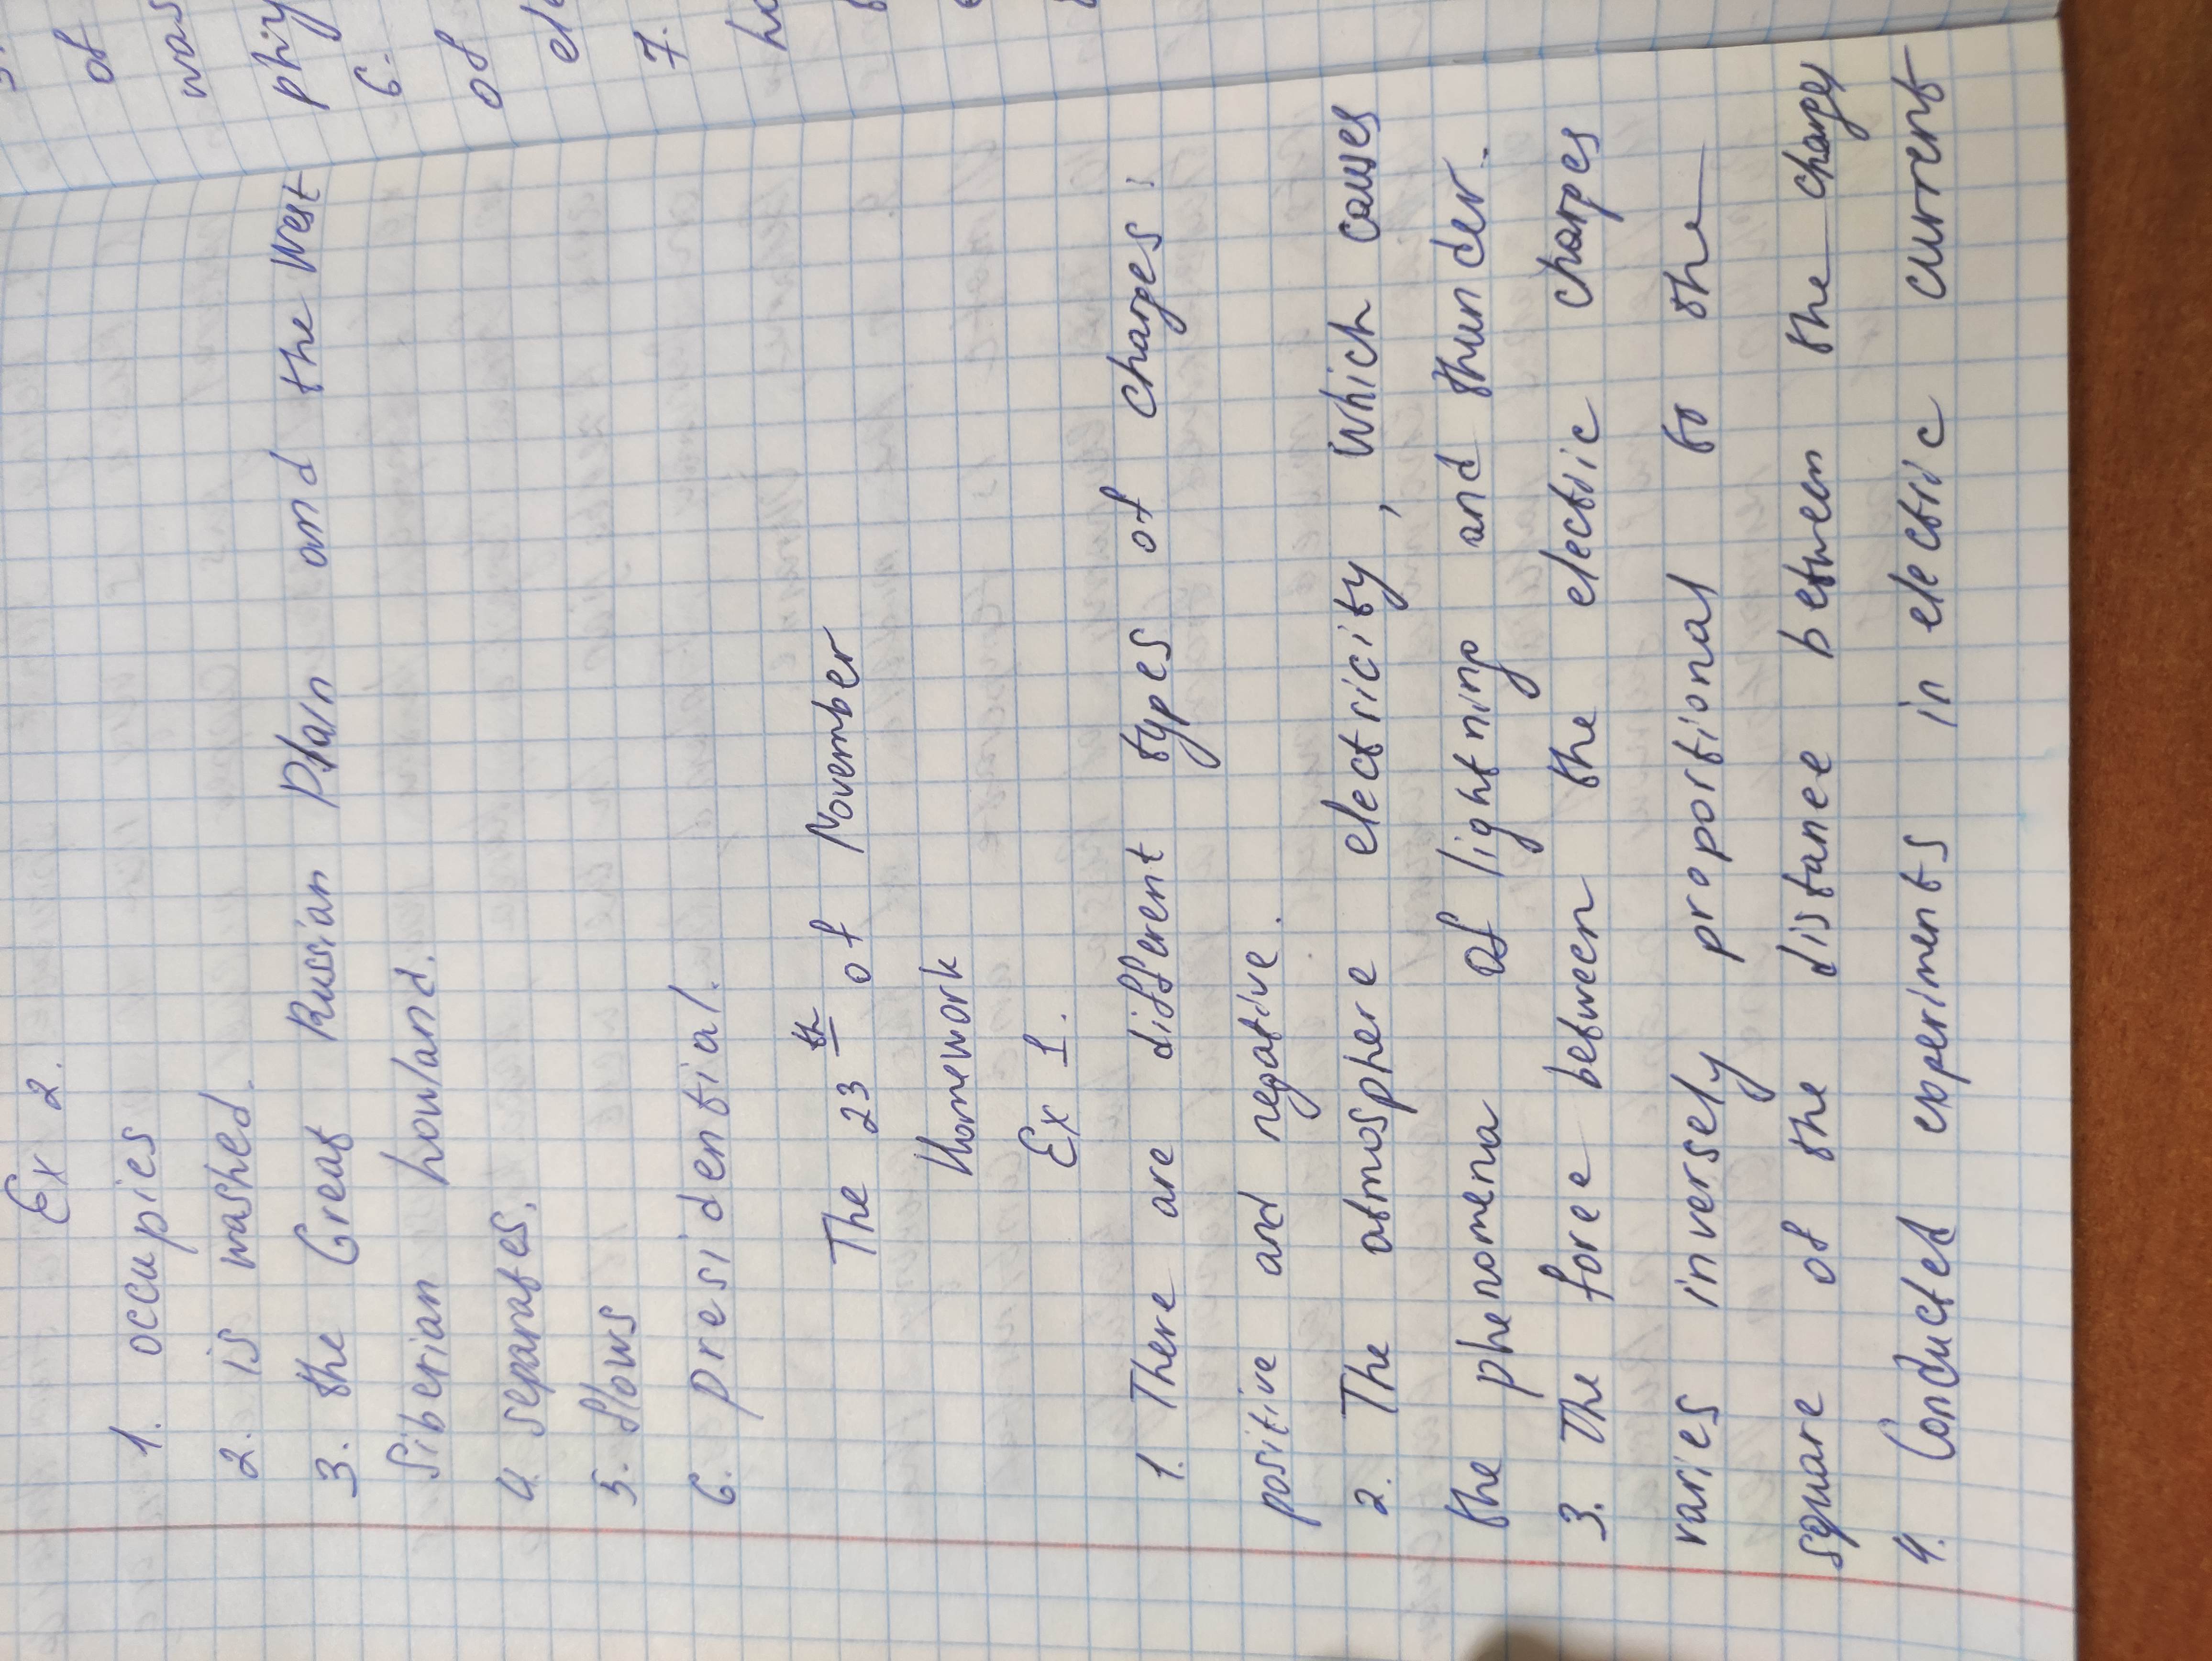 Ex 2.
1. occupies
2. is washed.
3. the Great Russian Plain and the West
Siberian howland.
4. separates.
5. flows
6. presidential.
The 23th of November
Homework
Ex 1.
1. There are different types of charges:
positive and negative.
2. The atmosphere electricity, which causes
the phenomena of lightning and thunder.
3. The force between the electric charges
varies inversely proportional to the
square of the distance between the charges
4. Conducted experiments in electric current
of
was
phiy
6.
of
ele
7.
ho